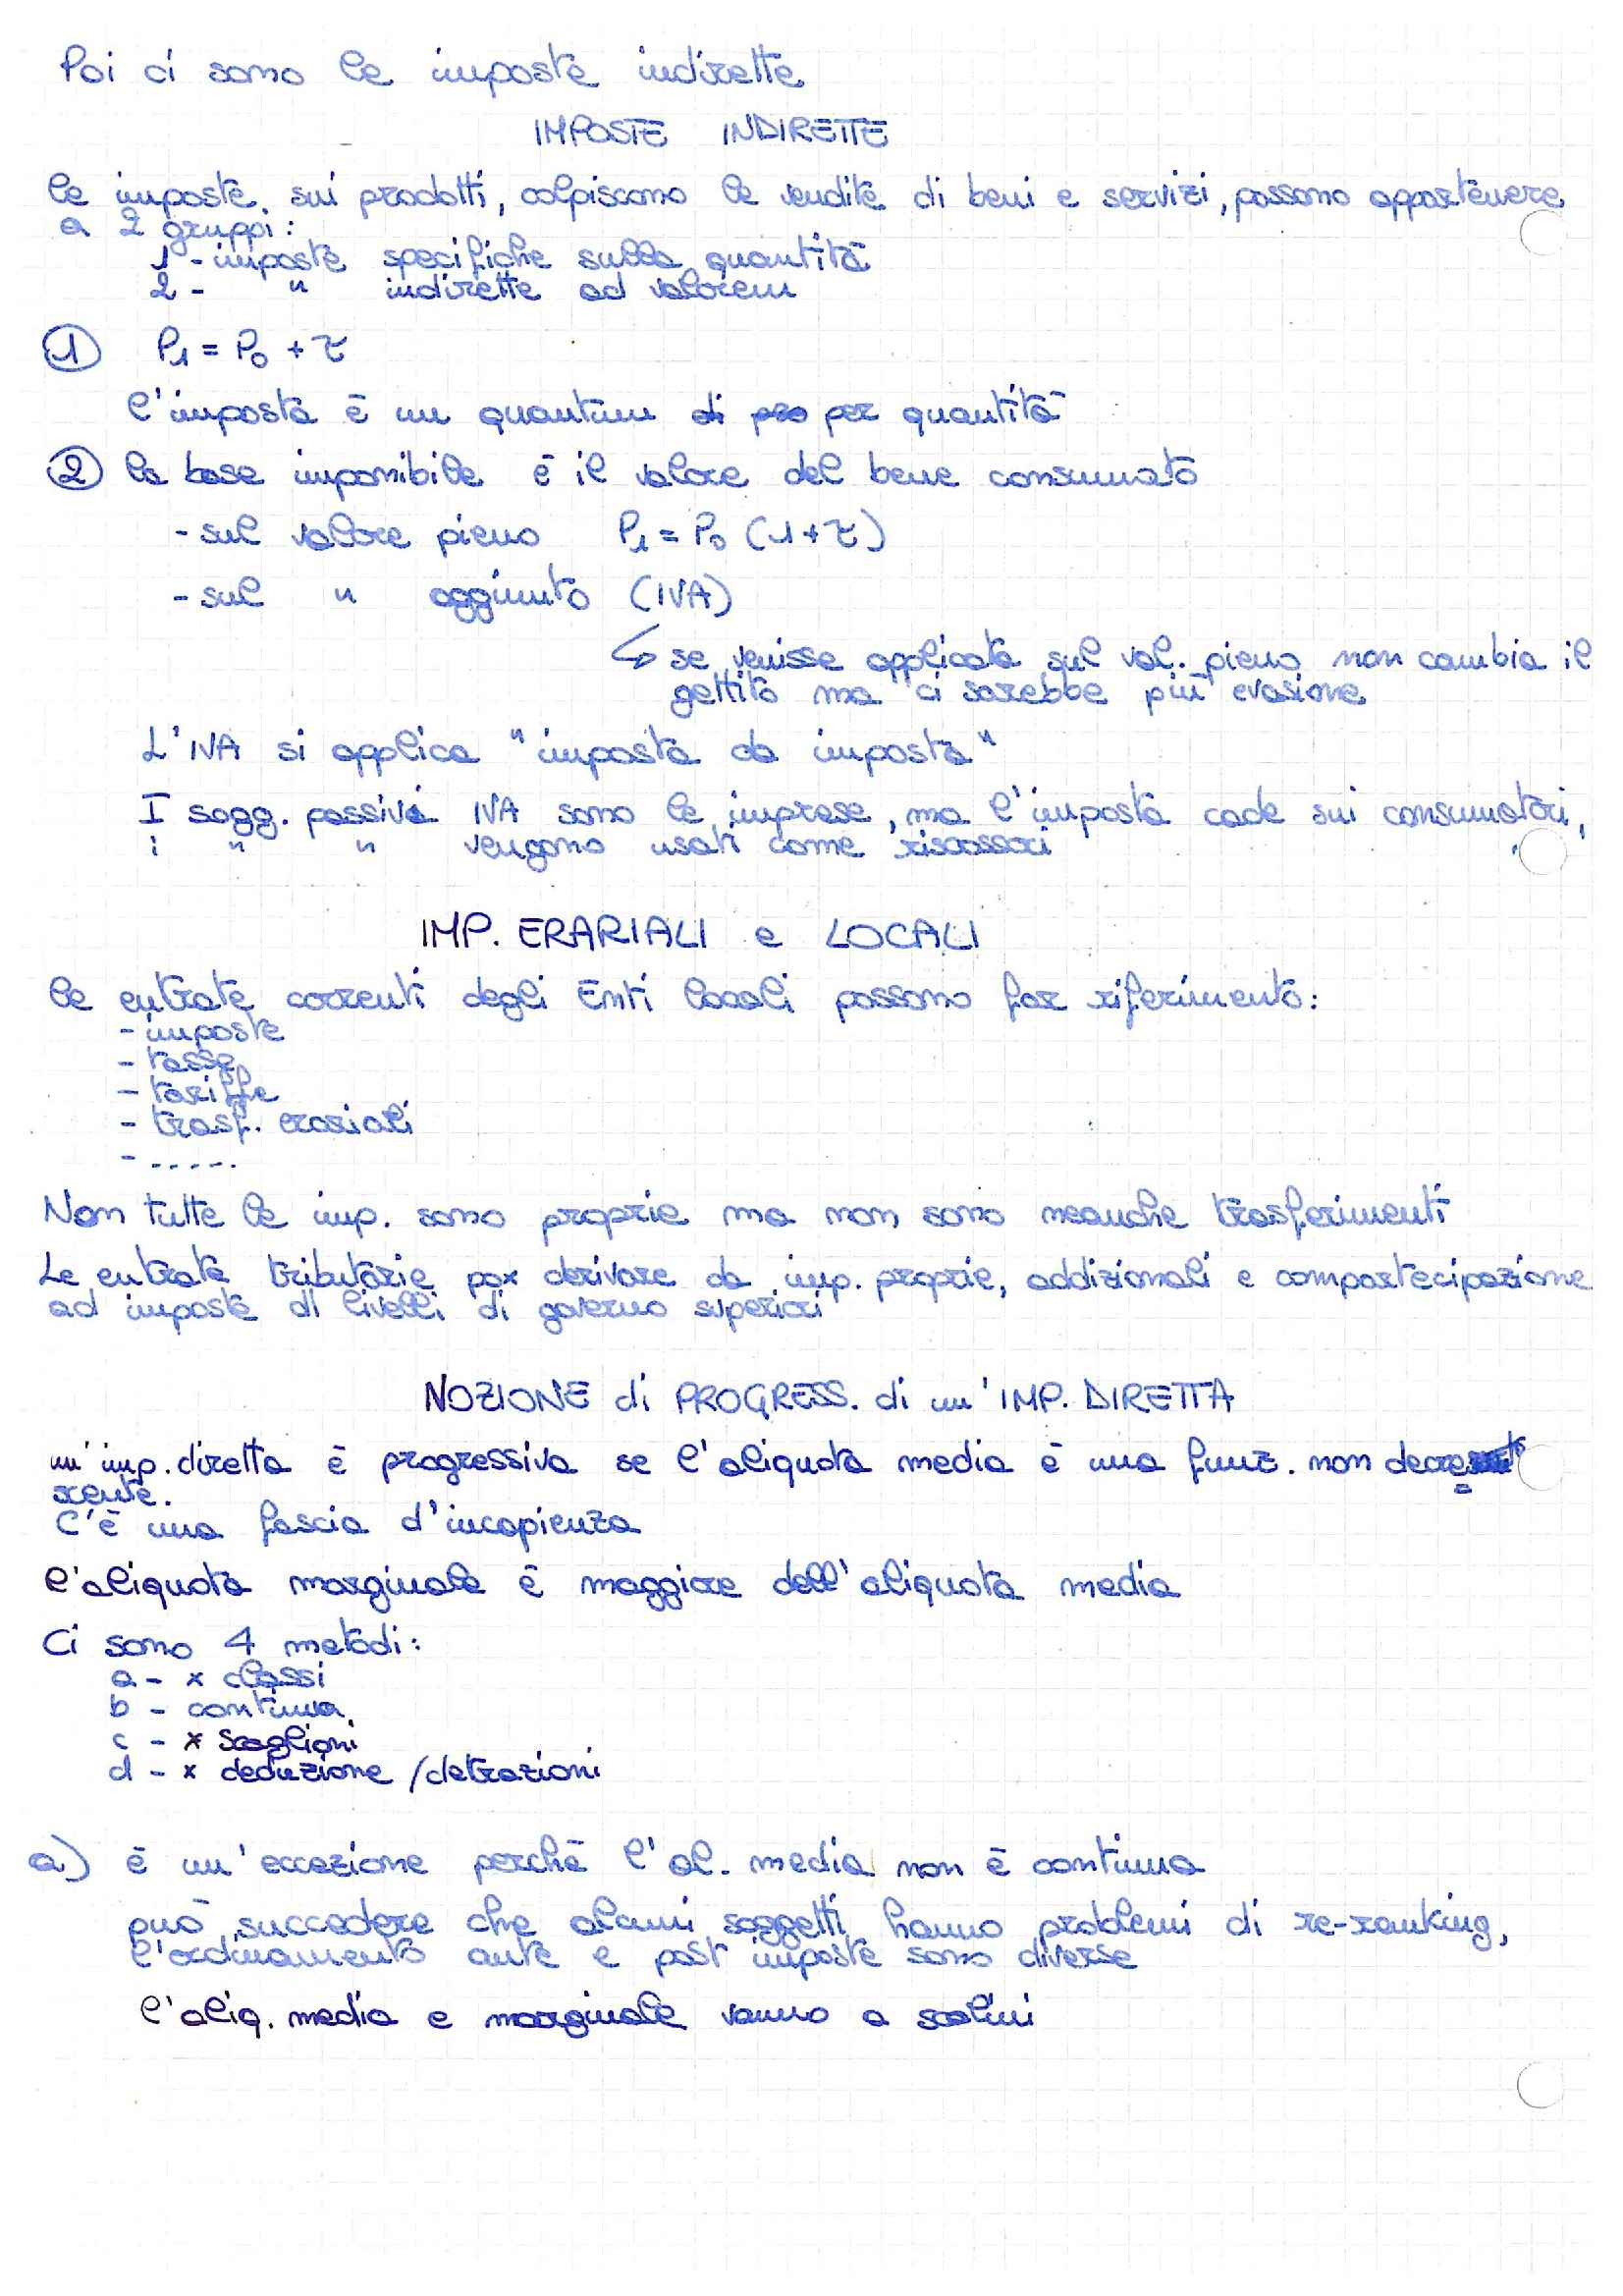 Poi ci sono le imposte indirette
IMPOSTE INDIRETTE
le imposte sui prodotti, colpiscono le vendite di beni e servizi, possono appartenere
a 2 gruppi:
1 - imposte specifiche sulla quantità
2 - " indirette ad valorem
① P₁ = P₀ + τ
l'imposta è un quantum di pro per quantità
② la base imponibile è il valore del bene consumato
- sul valore pieno P₁ = P₀ (1+τ)
- sul " aggiunto (IVA)
↳ se venisse applicata sul val. pieno non cambia il
gettito ma ci sarebbe più evasione
L'IVA si applica "imposta da imposta"
I sogg. passivi IVA sono le imprese, ma l'imposta cade sui consumatori,
i " " vengono usati come riscossori
IMP. ERARIALI e LOCALI
le entrate correnti degli Enti locali possono far riferimento:
- imposte
- tasse
- tariffe
- trasf. erariali
- .....
Non tutte le imp. sono proprie ma non sono neanche trasferimenti
Le entrate tributarie pox derivare da imp. proprie, addizionali e compartecipazione
ad imposte di livelli di governo superiori
NOZIONE di PROGRESS. di un'IMP. DIRETTA
un'imp. diretta è progressiva se l'aliquota media è una funz. non decre
scente.
C'è una fascia d'incapienza
l'aliquota marginale è maggiore dell'aliquota media
Ci sono 4 metodi:
a - x classi
b - continua
c - x scaglioni
d - x deduzione /detrazioni
a) è un'eccezione perchè l'al. media non è continua
può succedere che alcuni soggetti hanno problemi di re-ranking,
l'ordinamento ante e post imposte sono diverse
l'aliq. media e marginale vanno a scalini